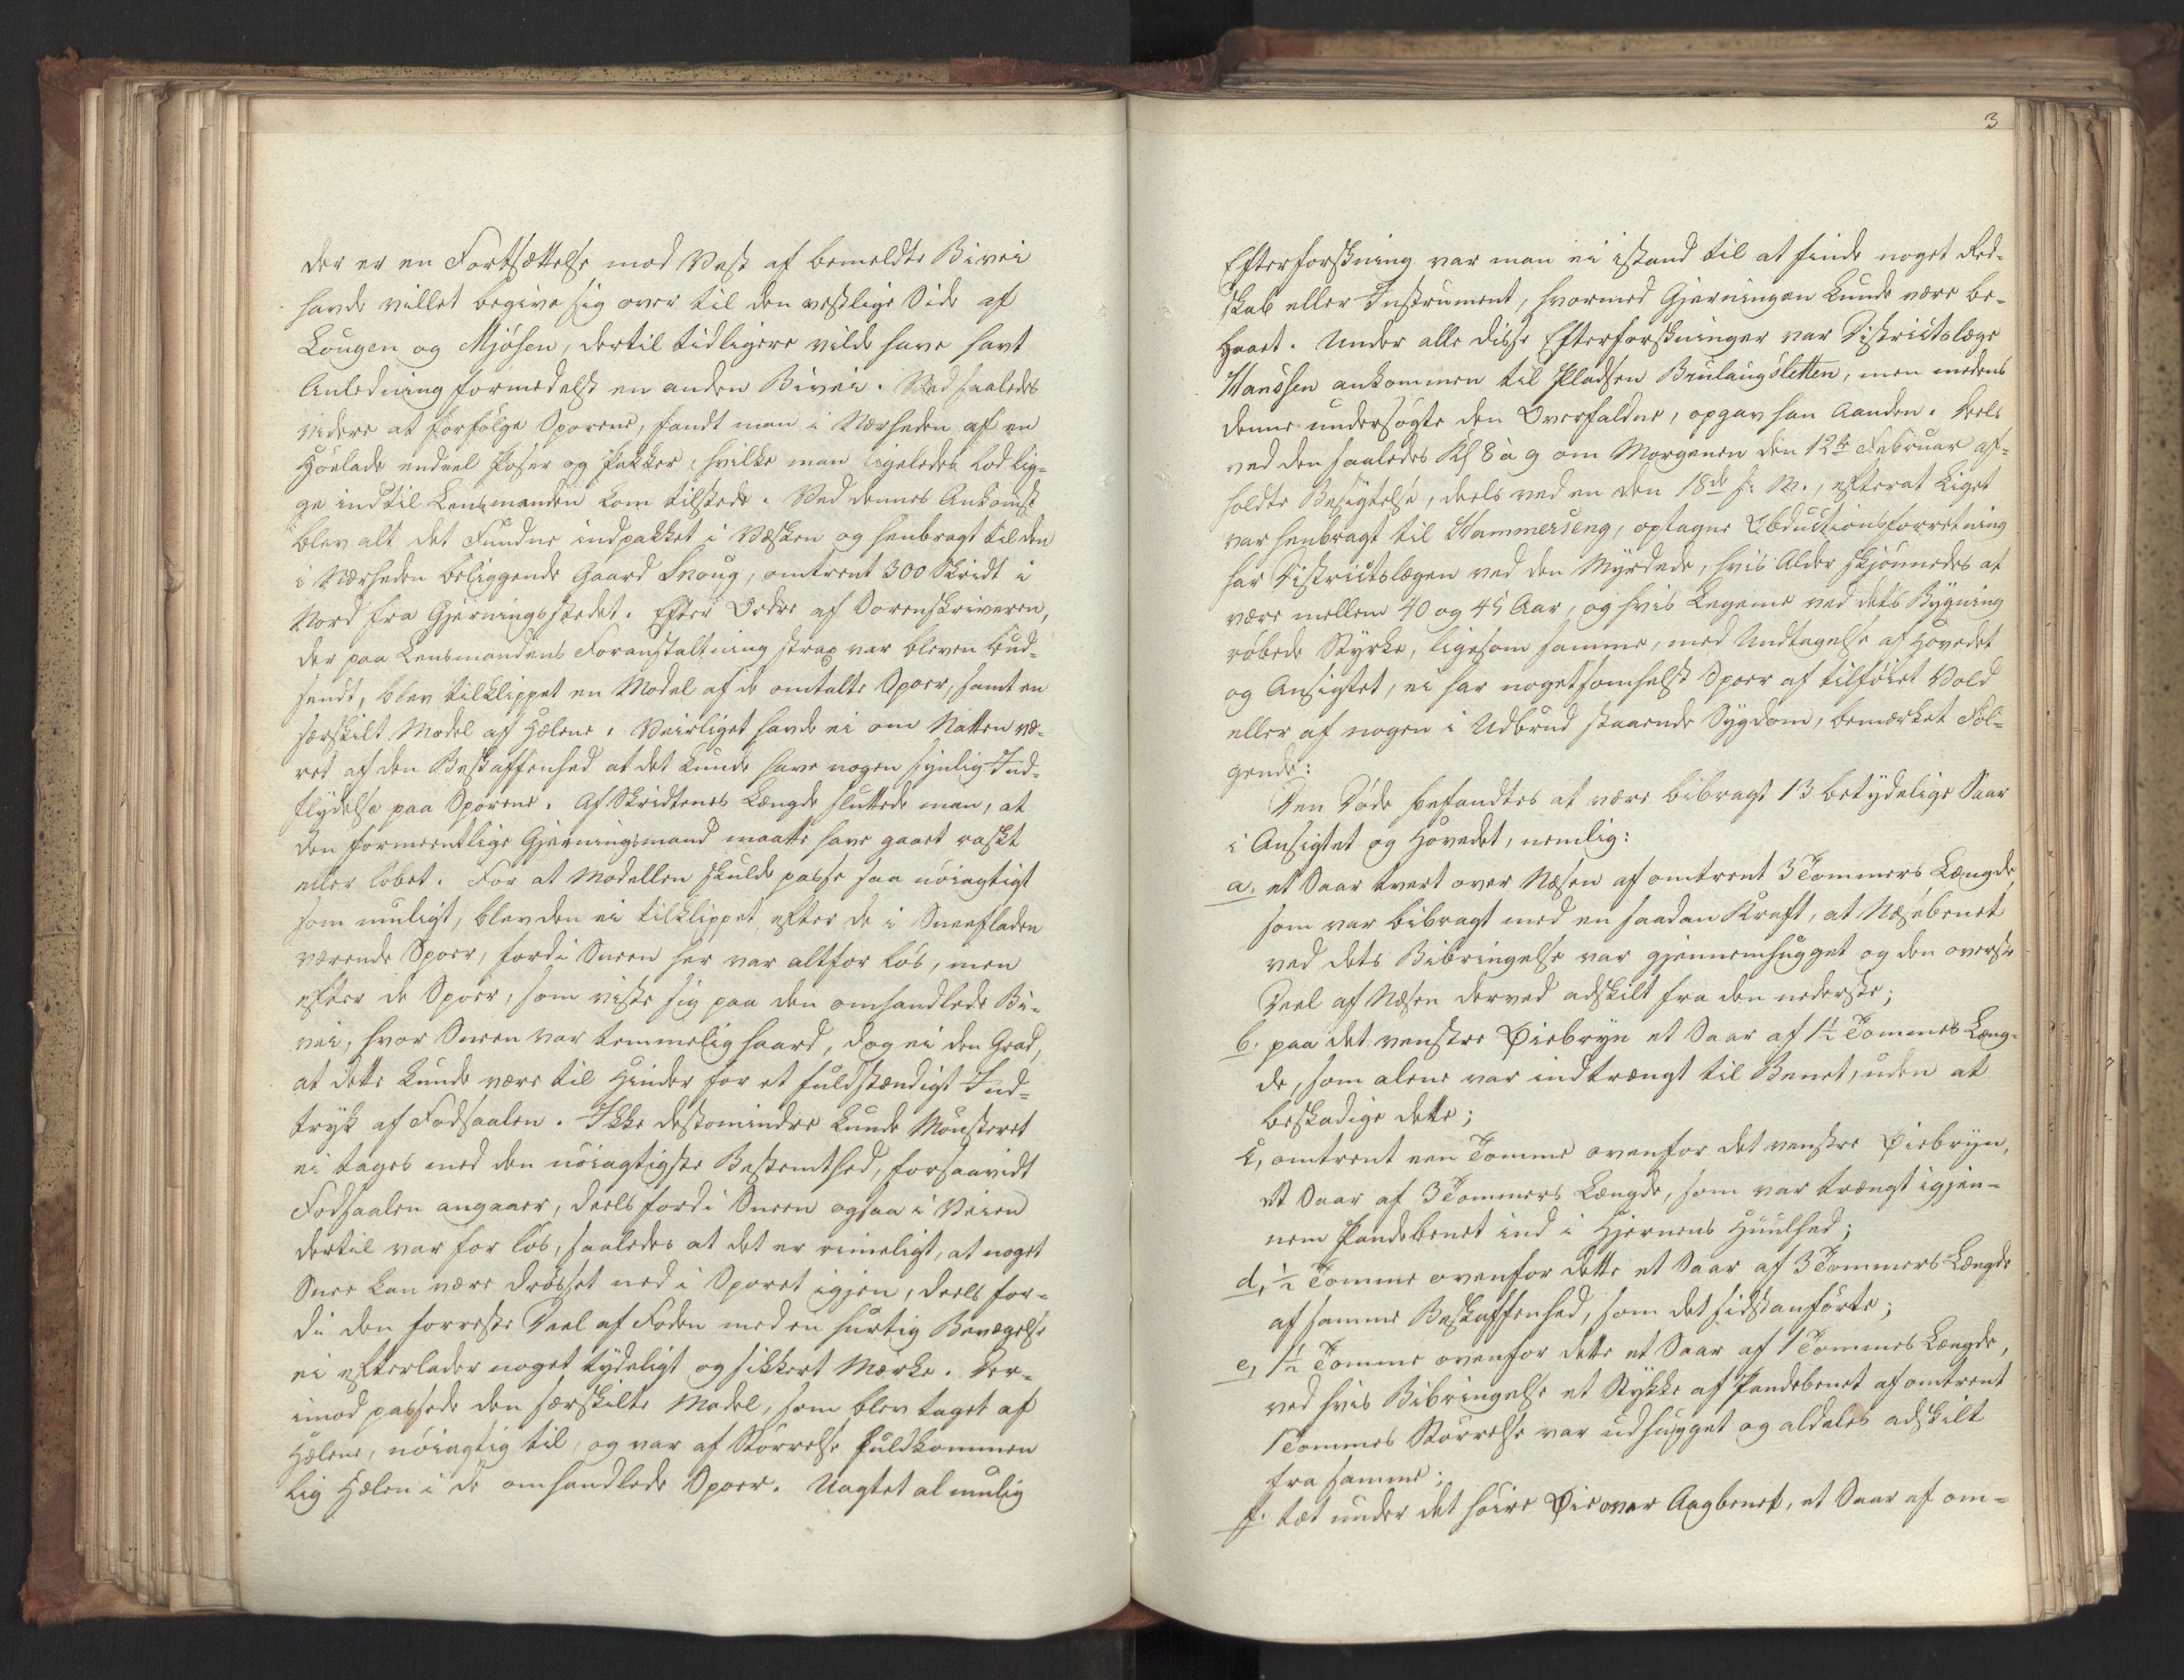 der er en Fortsættelse mod Vest af bemeldte Bivei
havde villet begive sig over til den vestlige Side af
Lougen og Mjösen, dertil tidligere vilde have havt
Anledning formedelst en anden Bivei. Ved saaledes
videre at forfölge Sporene, fandt man i Nærheden af en
Höelade endeel Poser og Pakker, hvilke man ligeledes lod lig-
ge indtil Lensmanden kom tilstede. Ved dennes Ankomst
blev alt det Fundne indpakket i Væsken og henbragt til den
i Nærheden beliggende Gaard Skoug, omtrent 300 Skridt i
Nord fra Gjerningsstedet. Efter Ordre af Sorenskriveren,
der paa Lensmandens Foranstaltning strax var bleven bud-
sendt, blev tilklippet en Model af de omtalte Spoer, samt en
særskilt Model af Hælene. Veirliget havde ei om Natten væ-
ret af den Beskaffenhed at det kunde have nogen synlig Ind-
flydelse paa Sporene. Af Skridtenes Længde sluttede man, at
den formeentlige Gjerningsmand maatte have gaaet raskt
eller löbet. For at Modellen skulde passe saa nöiagtigt
som muligt, blev den ei tilklippet efter de i Sneefladen
værende Spoer, fordi Sneen her var altfor lös, men
efter de Spoer, som viste sig paa den omhandlede Bi-
vei, hvor Sneen var temmelig haard, dog ei den Grad,
at dette kunde være til Hinder for et fuldstændigt Ind-
tryk af Fodsaalen. Ikke destomindre kunde Mönsteret
ei tages med den nöiagtigste Bestemthed, forsaavidt
Fodsaalen angaaer, deels fordi Sneen ogsaa i Veien
dertil var for lös, saaledes at det er rimeligt, at noget
Snee kan være drösset ned i Sporet igjen, deels for-
di den forreste Deel af Foden med en hurtig Bevægelse
ei efterlader noget tydeligt og sikkert Mærke. Der-
imod passede den særskilte Model, som blev taget af
Hælene, nöiagtig til, og var af Störrelse fuldkommen
lig Hælen i de omhandlede Spoer. Uagtet al mulig
3
Efterforskning var man ei istand til at finde noget Red-
skab eller Instrument, hvormed Gjerningen kunde være be-
gaaet. Under alle disse Efterforskninger var Districtslæge
Hanssen ankommen til Pladsen Brulaugsletten, men medens
denne undersögte den Overfaldne, opgav han Aanden. Deels
ved den saaledes Kl 8 à 9 om Morgenen den 12te Februar af-
holdte Besigtelse, deels ved en den 18de s. M., efterat Liget
var henbragt til Hammerseng, optagne Obductionsforretning
har Districtslægen ved den Myrdede, hvis Alder skjönnedes at
være mellem 40 og 45 Aar, og hvis Legeme ved dets Bygning
röbede Styrke, ligesom samme, med Undtagelse af Hovedet
og Ansigtet, ei har nogetsomhelst Spoer af tilföiet Vold
eller af nogen i Udbrud staaende Sygdom, bemærket Föl-
gende:
Den Döde befandtes at være bibragt 13 betydelige Saar
i Ansigtet og Hovedet, nemlig:
a. et Saar tvert over Næsen af omtrent 3 Tommers Længde,
som var bibragt med en saadan Kraft, at Næsebenet
ved dets Bibringelse var gjennemhugget og den overste
Deel af Næsen derved adskilt fra den nederste;
b. paa det venstre Öiebryn et Saar af 1½ Tommes Læng-
de, som alene var indtrængt til Benet, uden at
beskadige dette;
c, omtrent een Tomme ovenfor det venstre Öiebryn,
et Saar af 3 Tommers Længde, som var trængt igjen-
nem Pandebenet ind i Hjernens Huulhed;
d, ½ Tomme ovenfor dette et Saar af 3 Tommers Længde
af samme Beskaffenhed, som det sidstanförte;
e, 1½ Tomme ovenfor dette et Saar af 1 Tommes Længde,
ved hvis Bibringelse et Stykke af Pandebenet af omtrent
1 Tommes Störrelse var udhugget og aldeles adskilt
fra samme;
f. tæt under det höire Öie over Aagbenet, et Saar af om-